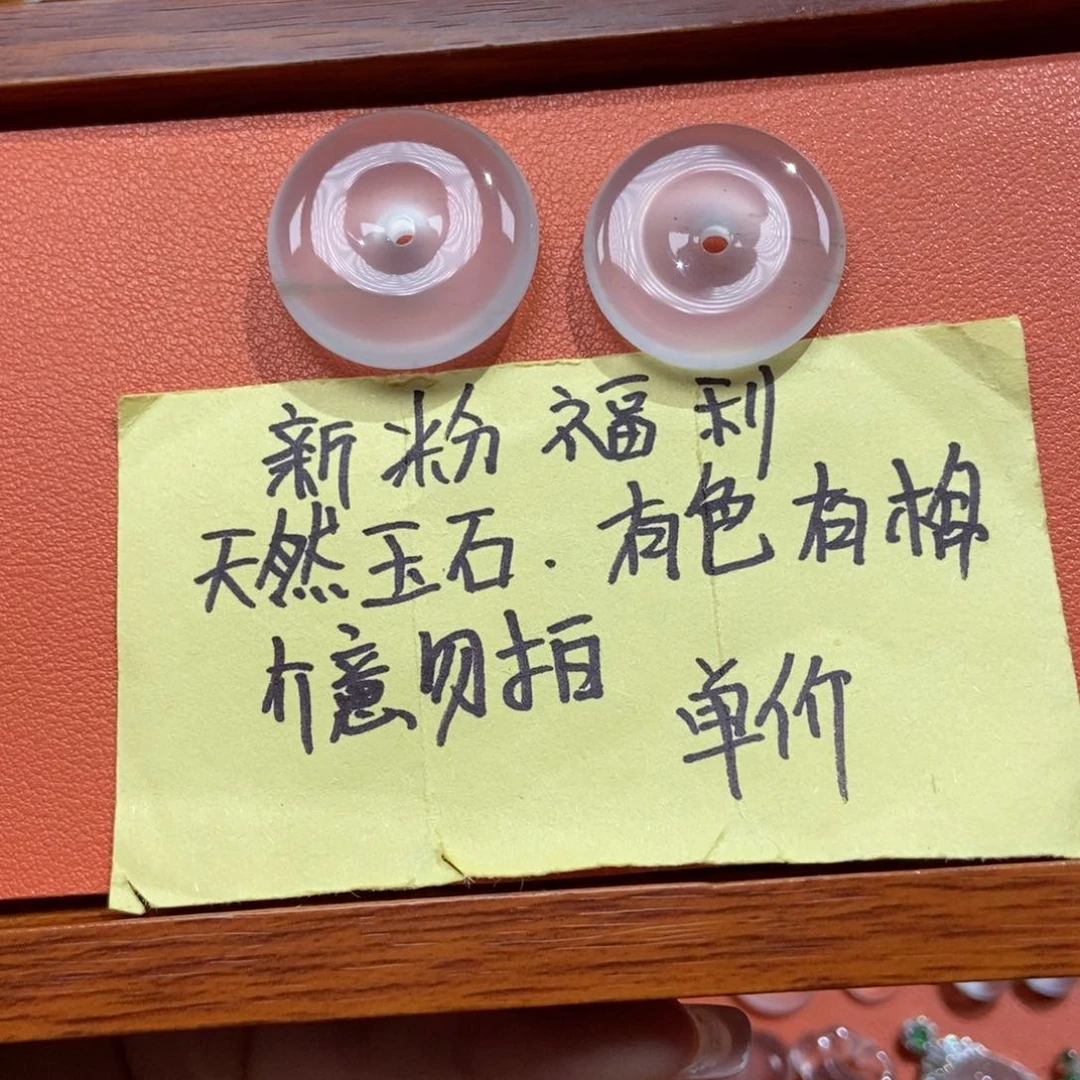 新粉福利
天然玉石.有色有棉
介意勿拍 单价